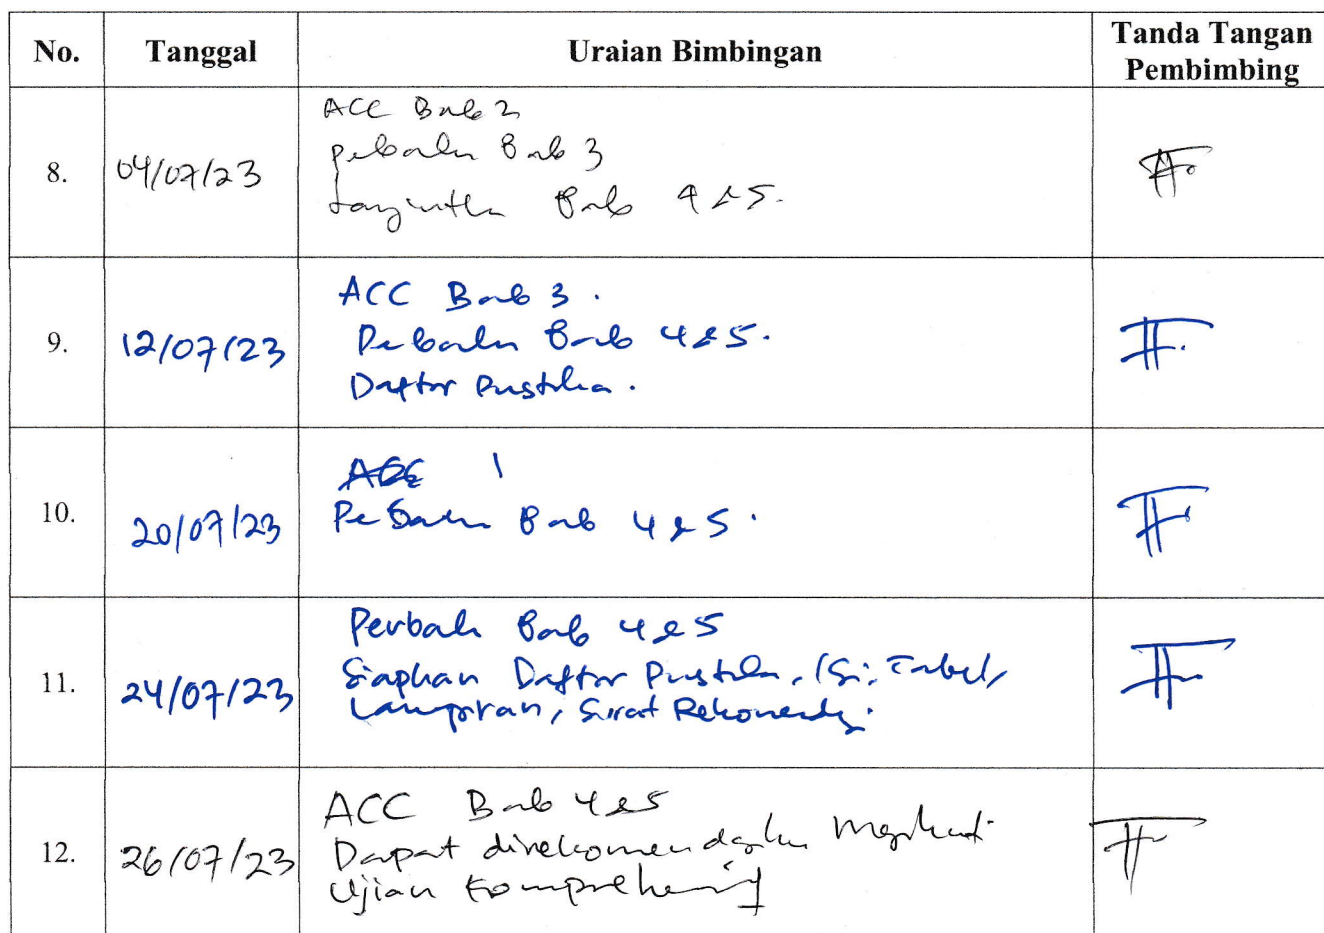 No. Tanggal Uraian Bimbingan Tanda Tangan Pembimbing
8. 04/07/23 ACC Bab 2
perbaiki Bab 3
Lanjutkan Bab 4 & 5.
9. 12/07/23 ACC Bab 3.
Perbaiki Bab 4 & 5.
Daftar Pustaka.
10. 20/07/23 ACC
Perbaiki Bab 4 & 5.
11. 24/07/23 Perbaiki Bab 4 & 5
Siapkan Daftar Pustaka, Isi, Tabel,
Lampiran, Surat Rekomendasi.
12. 26/07/23 ACC Bab 4 & 5
Dapat direkomendasikan Mengikuti
Ujian Komprehensif